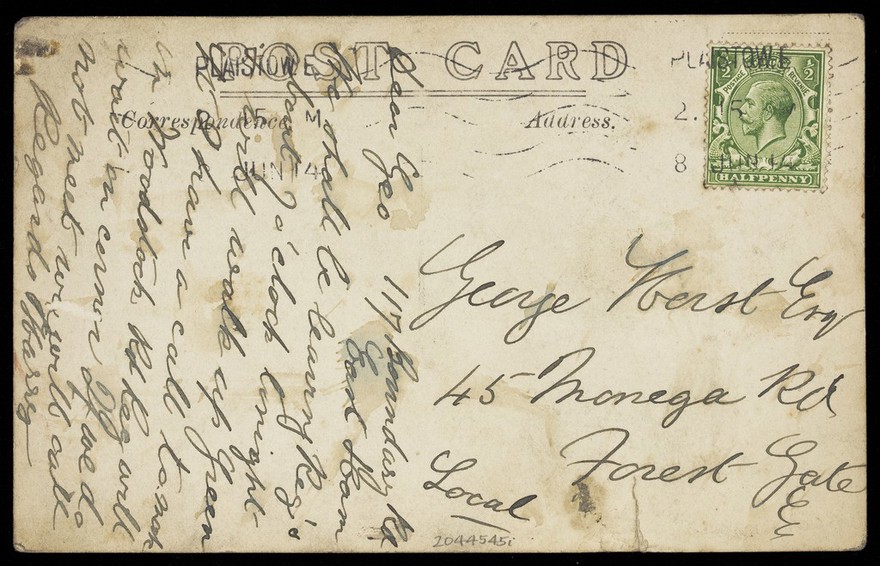 POST CARD
PLAISTOW.E
PLAISTOW.E
2.15
15 M
8 JUN 14
JUN 14
Correspondence.
Address.
POSTAGE REVENUE
½ ½
HALFPENNY
117 Boundary Rd
East Ham
Dear Geo
We shall be leaving Reg's
about 7 o'clock tonight
and walk up Green
St & have a call
in Woodstock Rd Reg will
wait on corner If we do
not meet we will call
Regards Harry
George Horst Esq
45 Monega Rd
Forest Gate
E
Local
2044545i